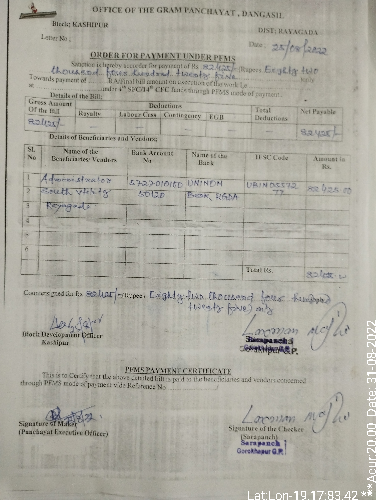 OFFICE OF THE GRAM PANCHAYAT, DANGASIL
Block: KASHIPUR
DIST: RAYAGADA
Letter No :
Date : 25/08/2022
ORDER FOR PAYMENT UNDER PFMS
Sanction is hereby accorded for payment of Rs. 82425/- (Rupees Eighty two
thousand four hundred twenty five
Towards payment of Final bill amount on execution of the work i.e
under 4th SFC/14th CFC funds through PFMS mode of payment.
Details of the Bill:
Gross Amount Of the Bill Deductions Total Deductions Net Payable
Royalty Labour Cess Contingency EGB
82425/- 82425/-
Details of Beneficiaries and Vendors:
Sl. No Name of the Beneficiaries/Vendors Bank Account No Name of the Bank IFSC Code Amount in Rs.
1 Administrator UNION 82425.00
2 South
3 Rayagada
4
5
6
Total Rs.
82425/- Rupees
thousand four hundred
twenty five) only
Block Development Officer
Kashipur
Laxman
Sarapanch
Gorakhapur G.P.
PFMS PAYMENT CERTIFICATE
This is to Certify that the above detailed bill is paid to the beneficiaries and vendors concerned
through PFMS mode of payment vide Reference No
Signature of Maker
(Panchayat Executive Officer)
Laxman
Signature of the Checker
(Sarapanch)
Sarapanch
Gorakhapur G.P.
Lat Lon-19.17:83.42
***Acur:20.00 Date: 31-08-2022